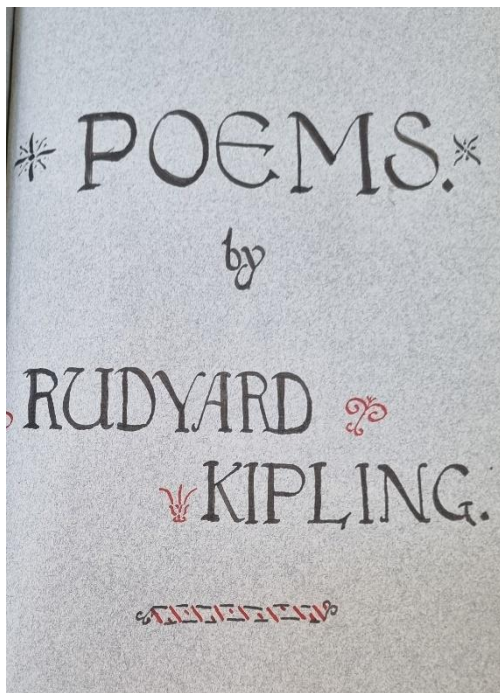 POEMS.
by
RUDYARD
KIPLING.